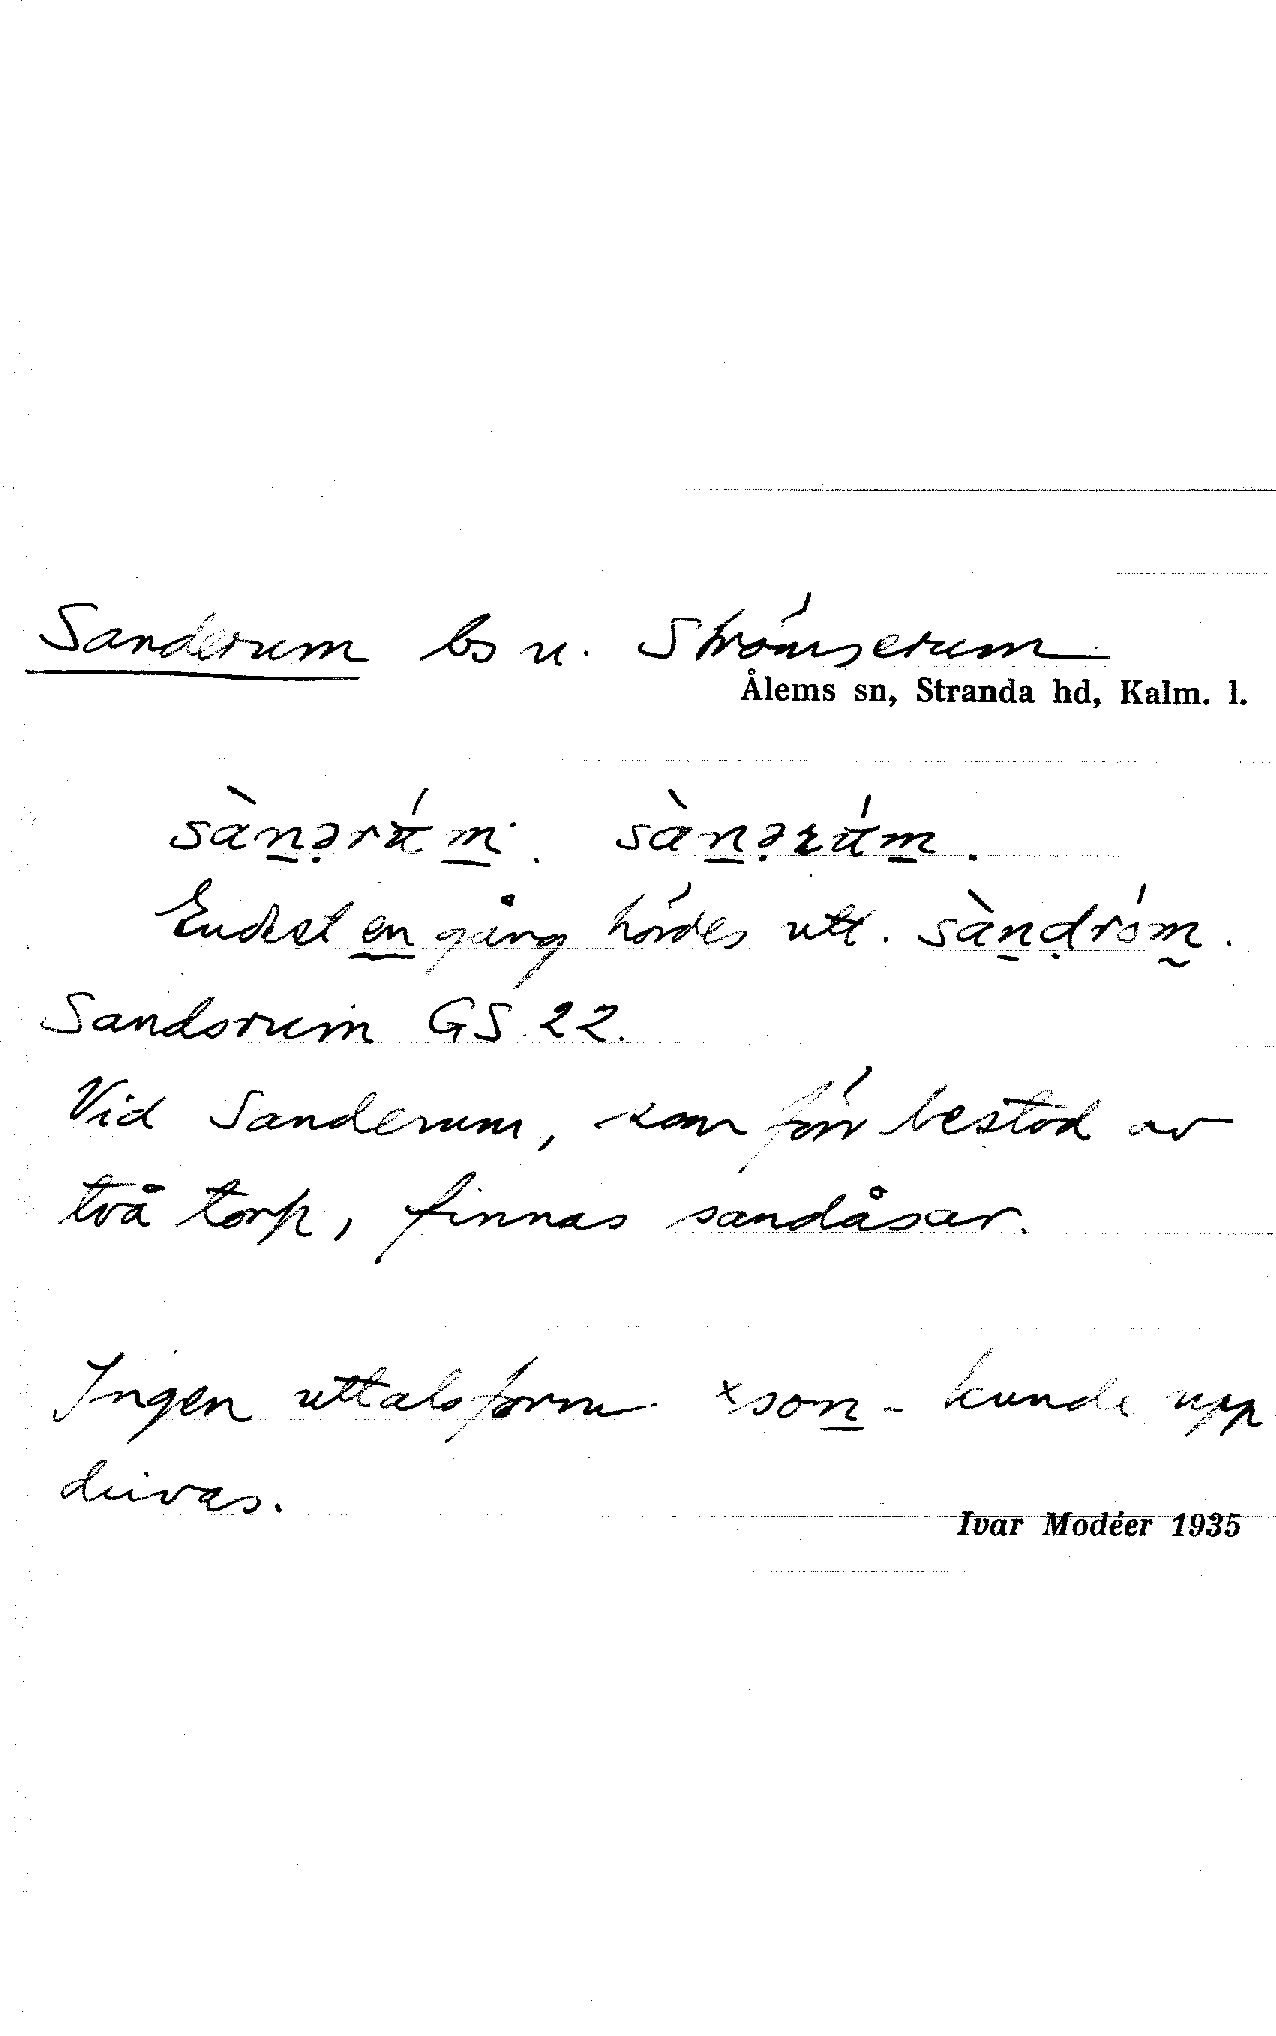 Sanderum bs u. Strömserum
Ålems sn, Stranda hd, Kalm. l.
sàn̲ərʉ́m̲. sàn̲ərʉ́m̲.
Endast en gång hördes utt. sàn̲dróm̰.
Sandsrum GS 22.
Vid Sanderum, som förr bestod av
två torp, finnas sandåsar.
Ingen uttalsform ×son̲- kunde upp
drivas.
Ivar Modéer 1935